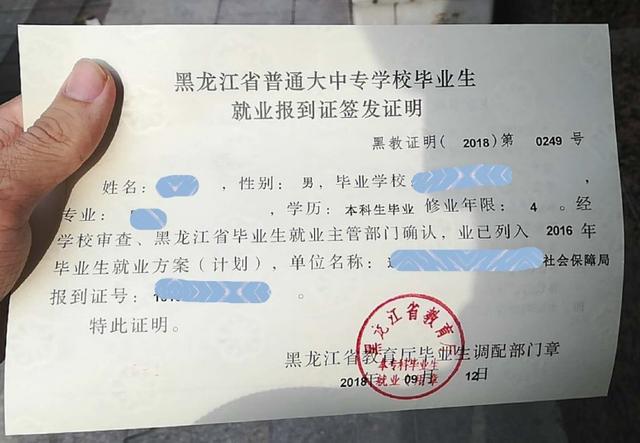 黑龙江省普通大中专学校毕业生
就业报到证签发证明
黑教证明( 2018)第 0249 号
姓名: ,性别: 男,毕业学校 ,
专业: ,学历: 本科生毕业 修业年限: 4 。经
学校审查、黑龙江省毕业生就业主管部门确认,业已列入 2016 年
毕业生就业方案(计划),单位名称: 社会保障局
报到证号: 。
特此证明。
黑龙江省教育
黑龙江省教育厅毕业生调配部门章
本专科毕业生
2018年 09月 12日